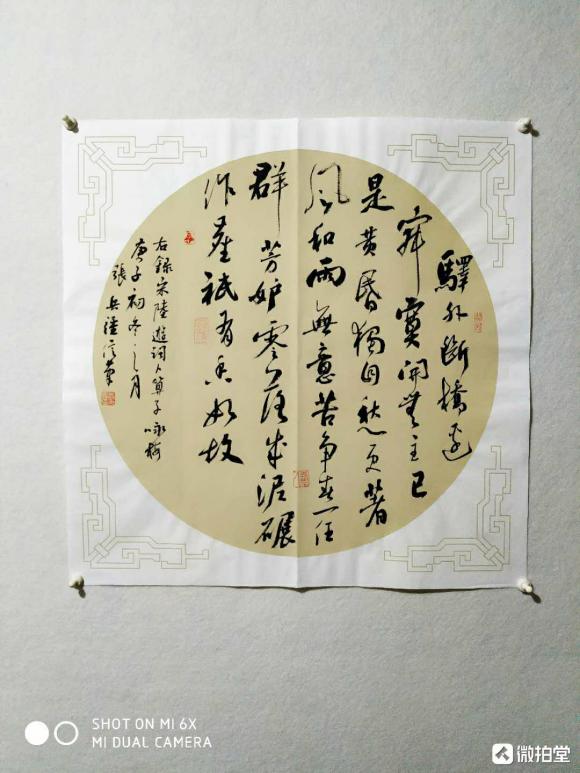 驛外斷橋邊
寂寞開無主已
是黄昏獨自愁更著
風和雨無意苦争春一任
群芳妒零落成泥碾
作塵祇有香如故
右錄宋陸遊詞卜算子咏梅
庚子初冬之月
張兵信筆
SHOT ON MI 6X
MI DUAL CAMERA
微拍堂